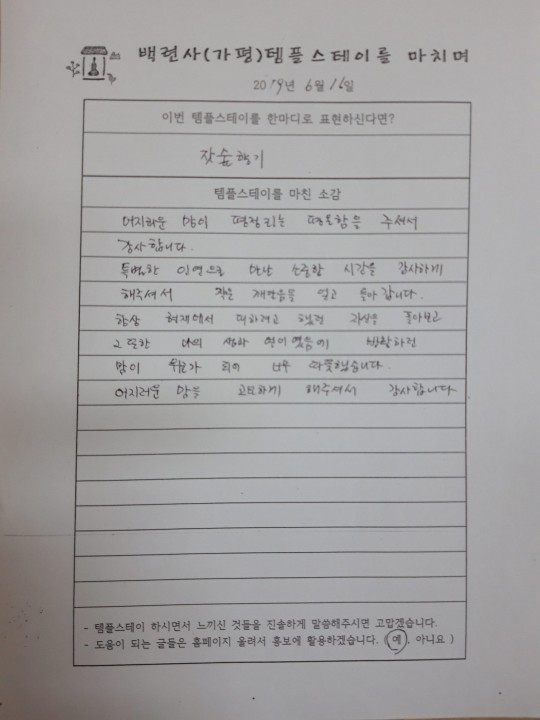 백련사(가평)템플스테이를 마치며
2019년 6월 16일
이번 템플스테이를 한마디로 표현하신다면?
잣숲향기
템플스테이를 마친 소감
어지러운 맘이 편안함을 주셔서
감사합니다.
특별한 인연으로 만난 소중한 시간을 감사하게
해주셔서 작은 깨달음을 얻고 돌아 갑니다.
항상 현재에서 피하려고 했던 자신을 돌아보고
그 또한 나의 방황하던
맘이 위로가 되어 너무 따뜻했습니다.
어지러운 맘을 고요하게 해주셔서 감사합니다
- 템플스테이 하시면서 느끼신 것들을 진솔하게 말씀해주시면 고맙겠습니다.
- 도움이 되는 글들은 홈페이지 올려서 홍보에 활용하겠습니다. ( 예, 아니요 )